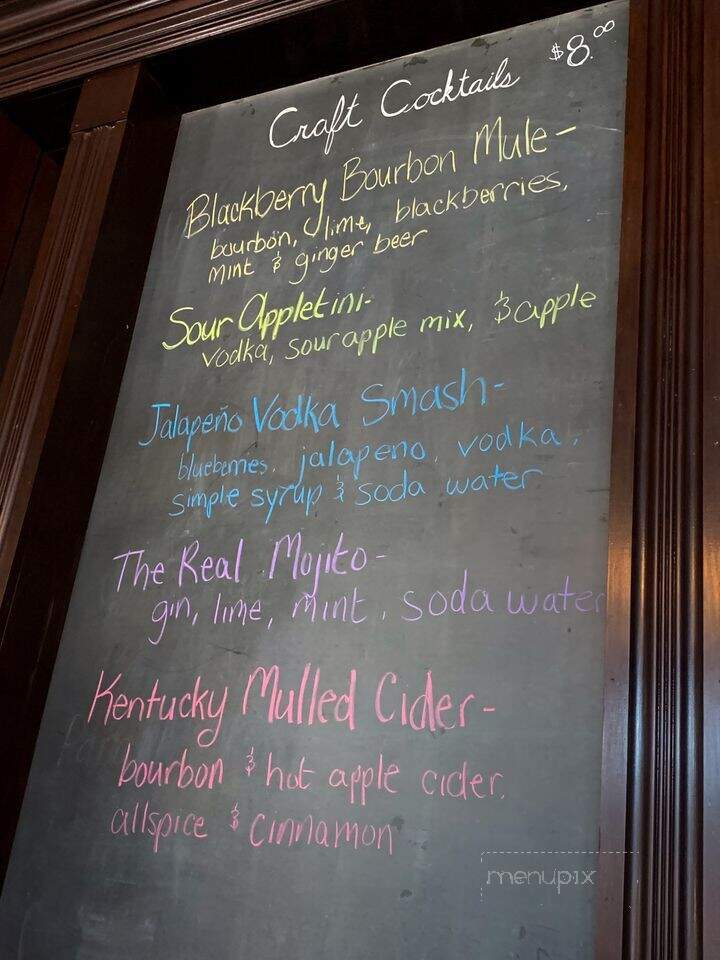 Craft Cocktails $8.00
Blackberry Bourbon Mule-
bourbon, lime, blackberries,
mint & ginger beer
Sour Appletini-
vodka, sour apple mix, & apple
Jalapeño Vodka Smash-
blueberries, jalapeno, vodka,
simple syrup & soda water
The Real Mojito-
gin, lime, mint, soda water
Kentucky Mulled Cider-
bourbon & hot apple cider,
allspice & cinnamon
menupix